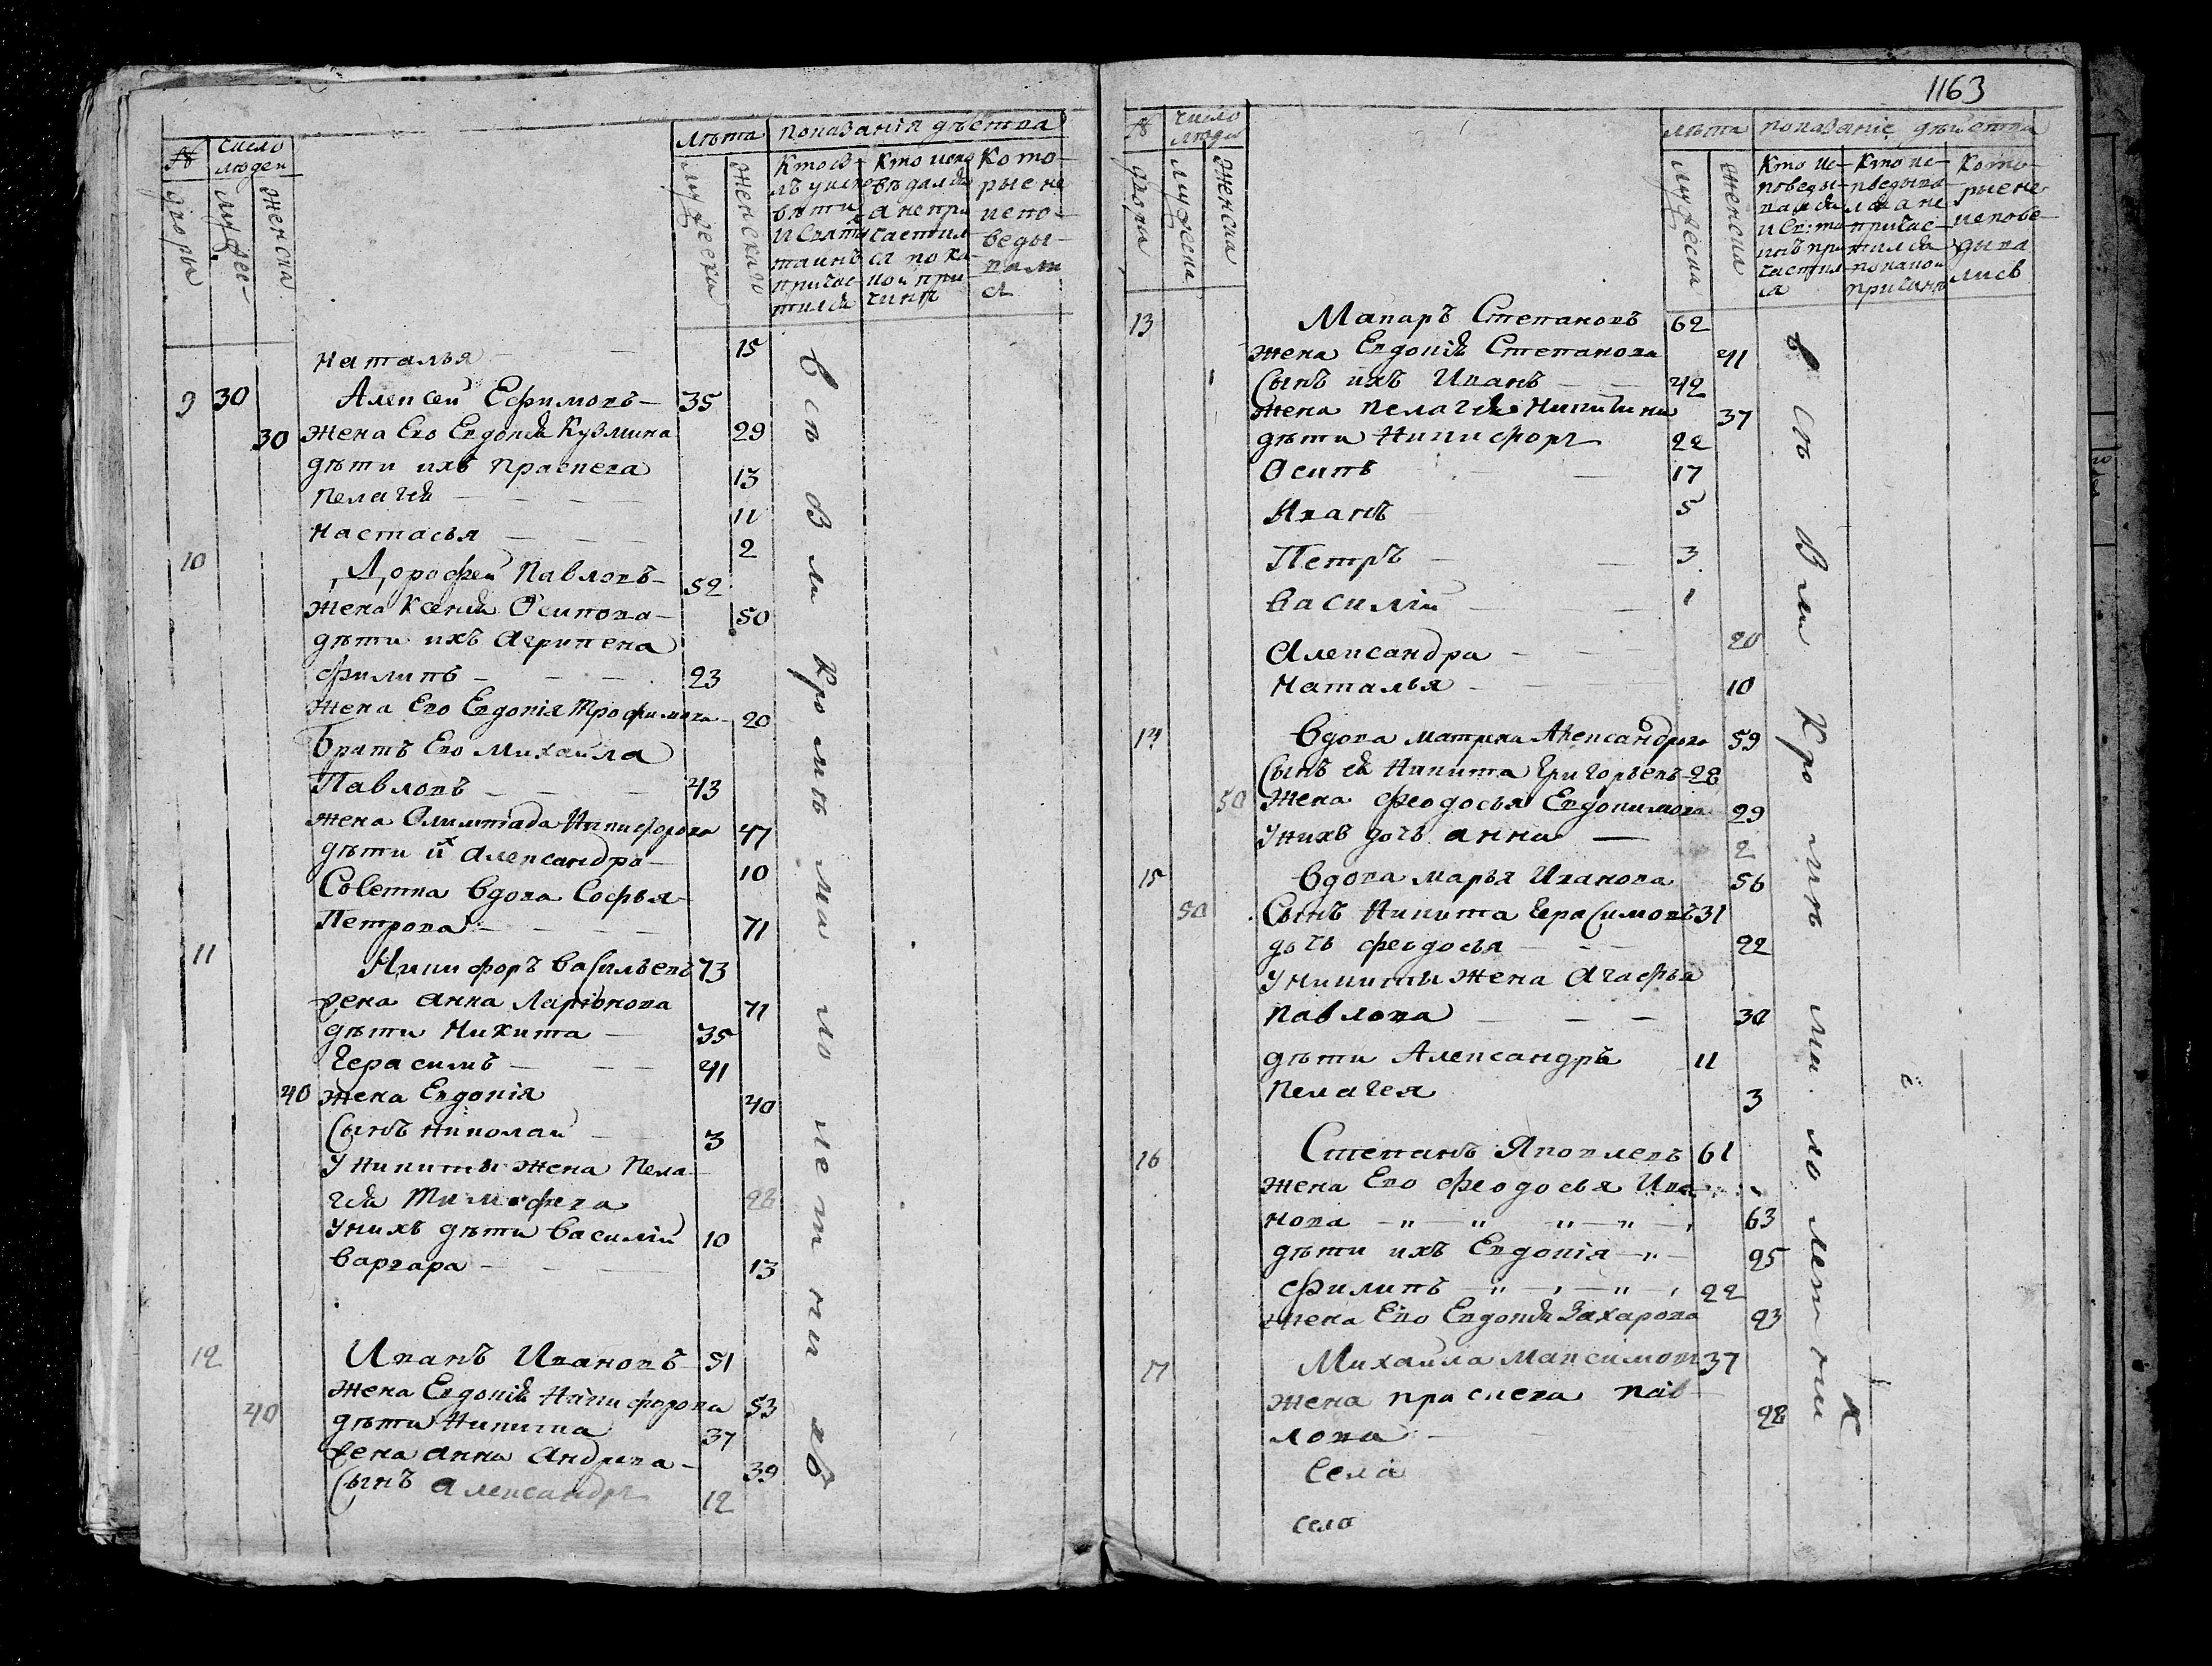 № двора
Число людей
Мужес-
Женска
Лѣта
Мужеска
Женскаго
показанія дѣетва
Кто ис-
Кто испо
Кото-
рые не
испо-
веды-
вали
сь
Наталья — — 15
9 30 Алексей Ефимовъ — 35
30 жена Его Евдокія Кузмина 29
дѣти ихъ Прасковя 13
Пелагѣя — — — 11
Настасья — — — 2
10 Дорофей Павловъ — 52
жена Ксенія Осипова — 50
дѣти ихъ Агрипена
Филипъ — — — 23
жена Его Евдокія Трофимова 20
братъ Его Михайла
Павловъ — — — 43
жена Олимпіада Никифорова 47
дѣти их Александра — 10
Вдова Софья
Петрова — — — — 71
11 Никифоръ Васильевъ 73
жена Анна Ларіонова 71
дѣти Никита — 35
Герасимъ — — — 41
40 жена Евдокія 40
Сынъ Николай — 3
У Никиты жена Пела-
гѣя Тимофева 28
У нихъ дѣти Василій 10
Варвара — — — 13
12 Иванъ Ивановъ 51
40 жена Евдокія Никифорова 53
дѣти Никита 37
жена Анна Андрева — 39
Сынъ Александръ 12
всѣ Кромѣ малолетнихъ
1163
№ двора
Число людей
Мужеска
Женска
Лѣта
Мужеска
Женска
показаніе дѣиства
Кото-
рые не
исповe-
дива
лись
13 Макаръ Степановъ 62
жена Евдокія Степанова 41
Сынъ ихъ Иванъ — — 42
жена Пелагѣя Никитина 37
дѣти Никифоръ 22
Осипъ — — 17
Иванъ 5
Петръ — — 3
Василій — — 1
Александра — — 20
Наталья — 10
14 Вдова Матрена Александрова 59
Сынъ ея Никита Григорьевъ 28
50 жена Феодосья Евдокимова 29
У нихъ дочь Анна — 2
15 Вдова Марья Иванова 56
50 Сынъ Никита Герасимовъ 31
дочь Феодосья — — — 22
У Никиты жена Агафья
Павлова — — — 30
дѣти Александръ 11
Пелагея 3
16 Степанъ Яковлевъ 61
жена Его Феодосья Ива-
нова — " — " " — " — , 63
дѣти ихъ Евдокія — " — 25
Филипъ — " — , — " — , 22
жена Его Евдокія Захарова 23
17 Михайла Максимовъ 37
жена Прасковя Пав-
лова — 28
Села
село
всѣ Кромѣ малолетних